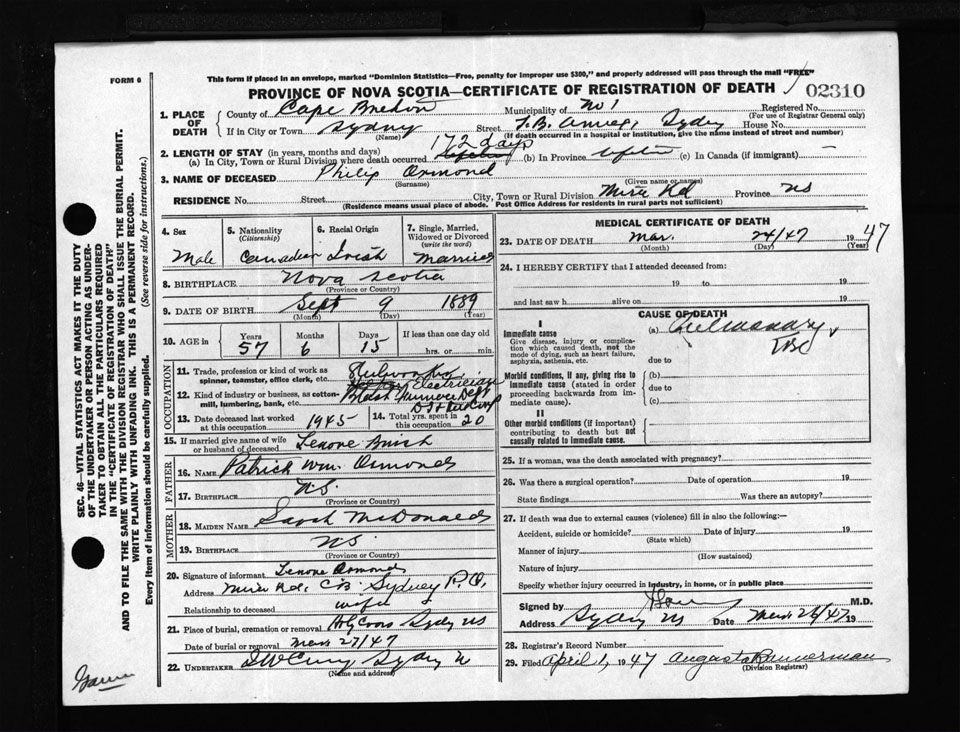 FORM 6
This form if placed in an envelope, marked "Dominion Statistics—Free, penalty for improper use $300," and properly addressed will pass through the mail "FREE"
PROVINCE OF NOVA SCOTIA—CERTIFICATE OF REGISTRATION OF DEATH
02310
1. PLACE OF DEATH
County of Cape Breton Municipality of No 1 Registered No.
(For use of Registrar General only)
If in City or Town Sydney Street T.B. Annex, Sydney House No.
(Name) (If death occurred in a hospital or institution, give the name instead of street and number)
2. LENGTH OF STAY (in years, months and days) 172 days
(a) In City, Town or Rural Division where death occurred (b) In Province Life (c) In Canada (if immigrant) —
3. NAME OF DECEASED Philip Ormond
(Surname) (Given name or names)
RESIDENCE No. Street City, Town or Rural Division Mira Rd Province NS
(Residence means usual place of abode. Post Office Address for residents in rural parts not sufficient)
4. Sex Male
5. Nationality (Citizenship) Canadian
6. Racial Origin Irish
7. Single, Married, Widowed or Divorced (write the word) Married
8. BIRTHPLACE Nova Scotia
(Province or Country)
9. DATE OF BIRTH Sept 9 1889
(Month) (Day) (Year)
10. AGE in Years 57 Months 6 Days 15 If less than one day old hrs. or min.
OCCUPATION
11. Trade, profession or kind of work as spinner, teamster, office clerk, etc. Electrician
12. Kind of industry or business, as cotton-mill, lumbering, bank, etc.
13. Date deceased last worked at this occupation 1945
14. Total yrs. spent in this occupation 20
15. If married give name of wife or husband of deceased Lenore
FATHER
16. NAME Patrick Wm. Ormond
17. BIRTHPLACE N.S.
(Province or Country)
MOTHER
18. MAIDEN NAME Sarah McDonald
19. BIRTHPLACE N.S.
(Province or Country)
20. Signature of informant Lenore Ormond
Address Mira Rd. C.B. Sydney P.O.
Relationship to deceased wife
21. Place of burial, cremation or removal Holy Cross Sydney NS
Date of burial or removal Mar 27/47
22. UNDERTAKER Sydney
(Name and address)
MEDICAL CERTIFICATE OF DEATH
23. DATE OF DEATH Mar. 24/47 1947
(Month) (Day) (Year)
24. I HEREBY CERTIFY that I attended deceased from:
19 to 19
and last saw h alive on 19
CAUSE OF DEATH
I
Immediate cause (a) Pulmonary TBC
Give disease, injury or complication which caused death, not the mode of dying, such as heart failure, asphyxia, asthenia, etc.
due to
Morbid conditions, if any, giving rise to immediate cause (stated in order proceeding backwards from immediate cause).
(b)
due to
(c)
II
Other morbid conditions (if important) contributing to death but not causally related to immediate cause.
25. If a woman, was the death associated with pregnancy?
26. Was there a surgical operation? Date of operation 19
State findings Was there an autopsy?
27. If death was due to external causes (violence) fill in also the following:—
Accident, suicide or homicide? Date of injury 19
(State which)
Manner of injury
(How sustained)
Nature of injury
Specify whether injury occurred in industry, in home, or in public place
Signed by M.D.
Address Sydney NS Date Mar 26/47 19
28. Registrar's Record Number
29. Filed April 1, 1947 Augusta Bannerman
(Division Registrar)
SEC. 46—VITAL STATISTICS ACT MAKES IT THE DUTY
OF THE UNDERTAKER OR PERSON ACTING AS UNDER-
TAKER TO OBTAIN ALL THE PARTICULARS REQUIRED
IN THE "CERTIFICATE OF REGISTRATION OF DEATH"
AND TO FILE THE SAME WITH THE DIVISION REGISTRAR WHO SHALL ISSUE THE BURIAL PERMIT.
WRITE PLAINLY WITH UNFADING INK. THIS IS A PERMANENT RECORD.
Every item of information should be carefully supplied. (See reverse side for instructions.)